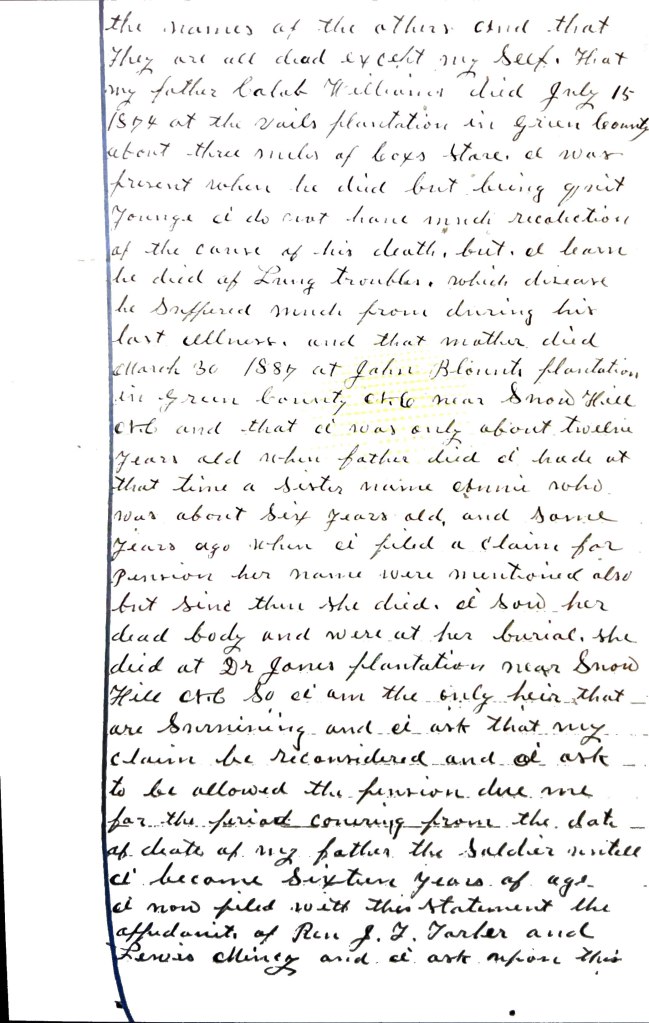 the names of the others and that
They are all dead except my Self. That
my father Calab Williams died July 15
1874 at the Vails plantation in Green County
about three miles of Coxs Stare. I was
present when he died but being quit
Younge I do not have much recolection
of the cause of his death. but. I learn
he died of Lung troubles. which disease
he Suffered much from during his
last illness. and that mother died
March 30 1887 at John Blounts plantation
in Green County N.C near Snow Hill
N.C and that I was only about twelve
Years old when father died I hade at
that time a Sister name Annie who
was about Six Years old, and Some
Years ago when I filed a claim for
Pension her name were mentioned also
but Sinc then She died. I Sow her
dead body and were at her burial. She
died at Dr Jones plantation near Snow
Hill N.C So I am the only heir that
are Surnining and I ask that my
claim be reconsidered and I ask
to be allowed the pension due me
for the period covering from the date
of death of my father the Soldier untill
I become Sixteen Years of age
I now filed with this Statement the
affudanits of Ren J. T. and
Lewis Mincy and I ask upon this